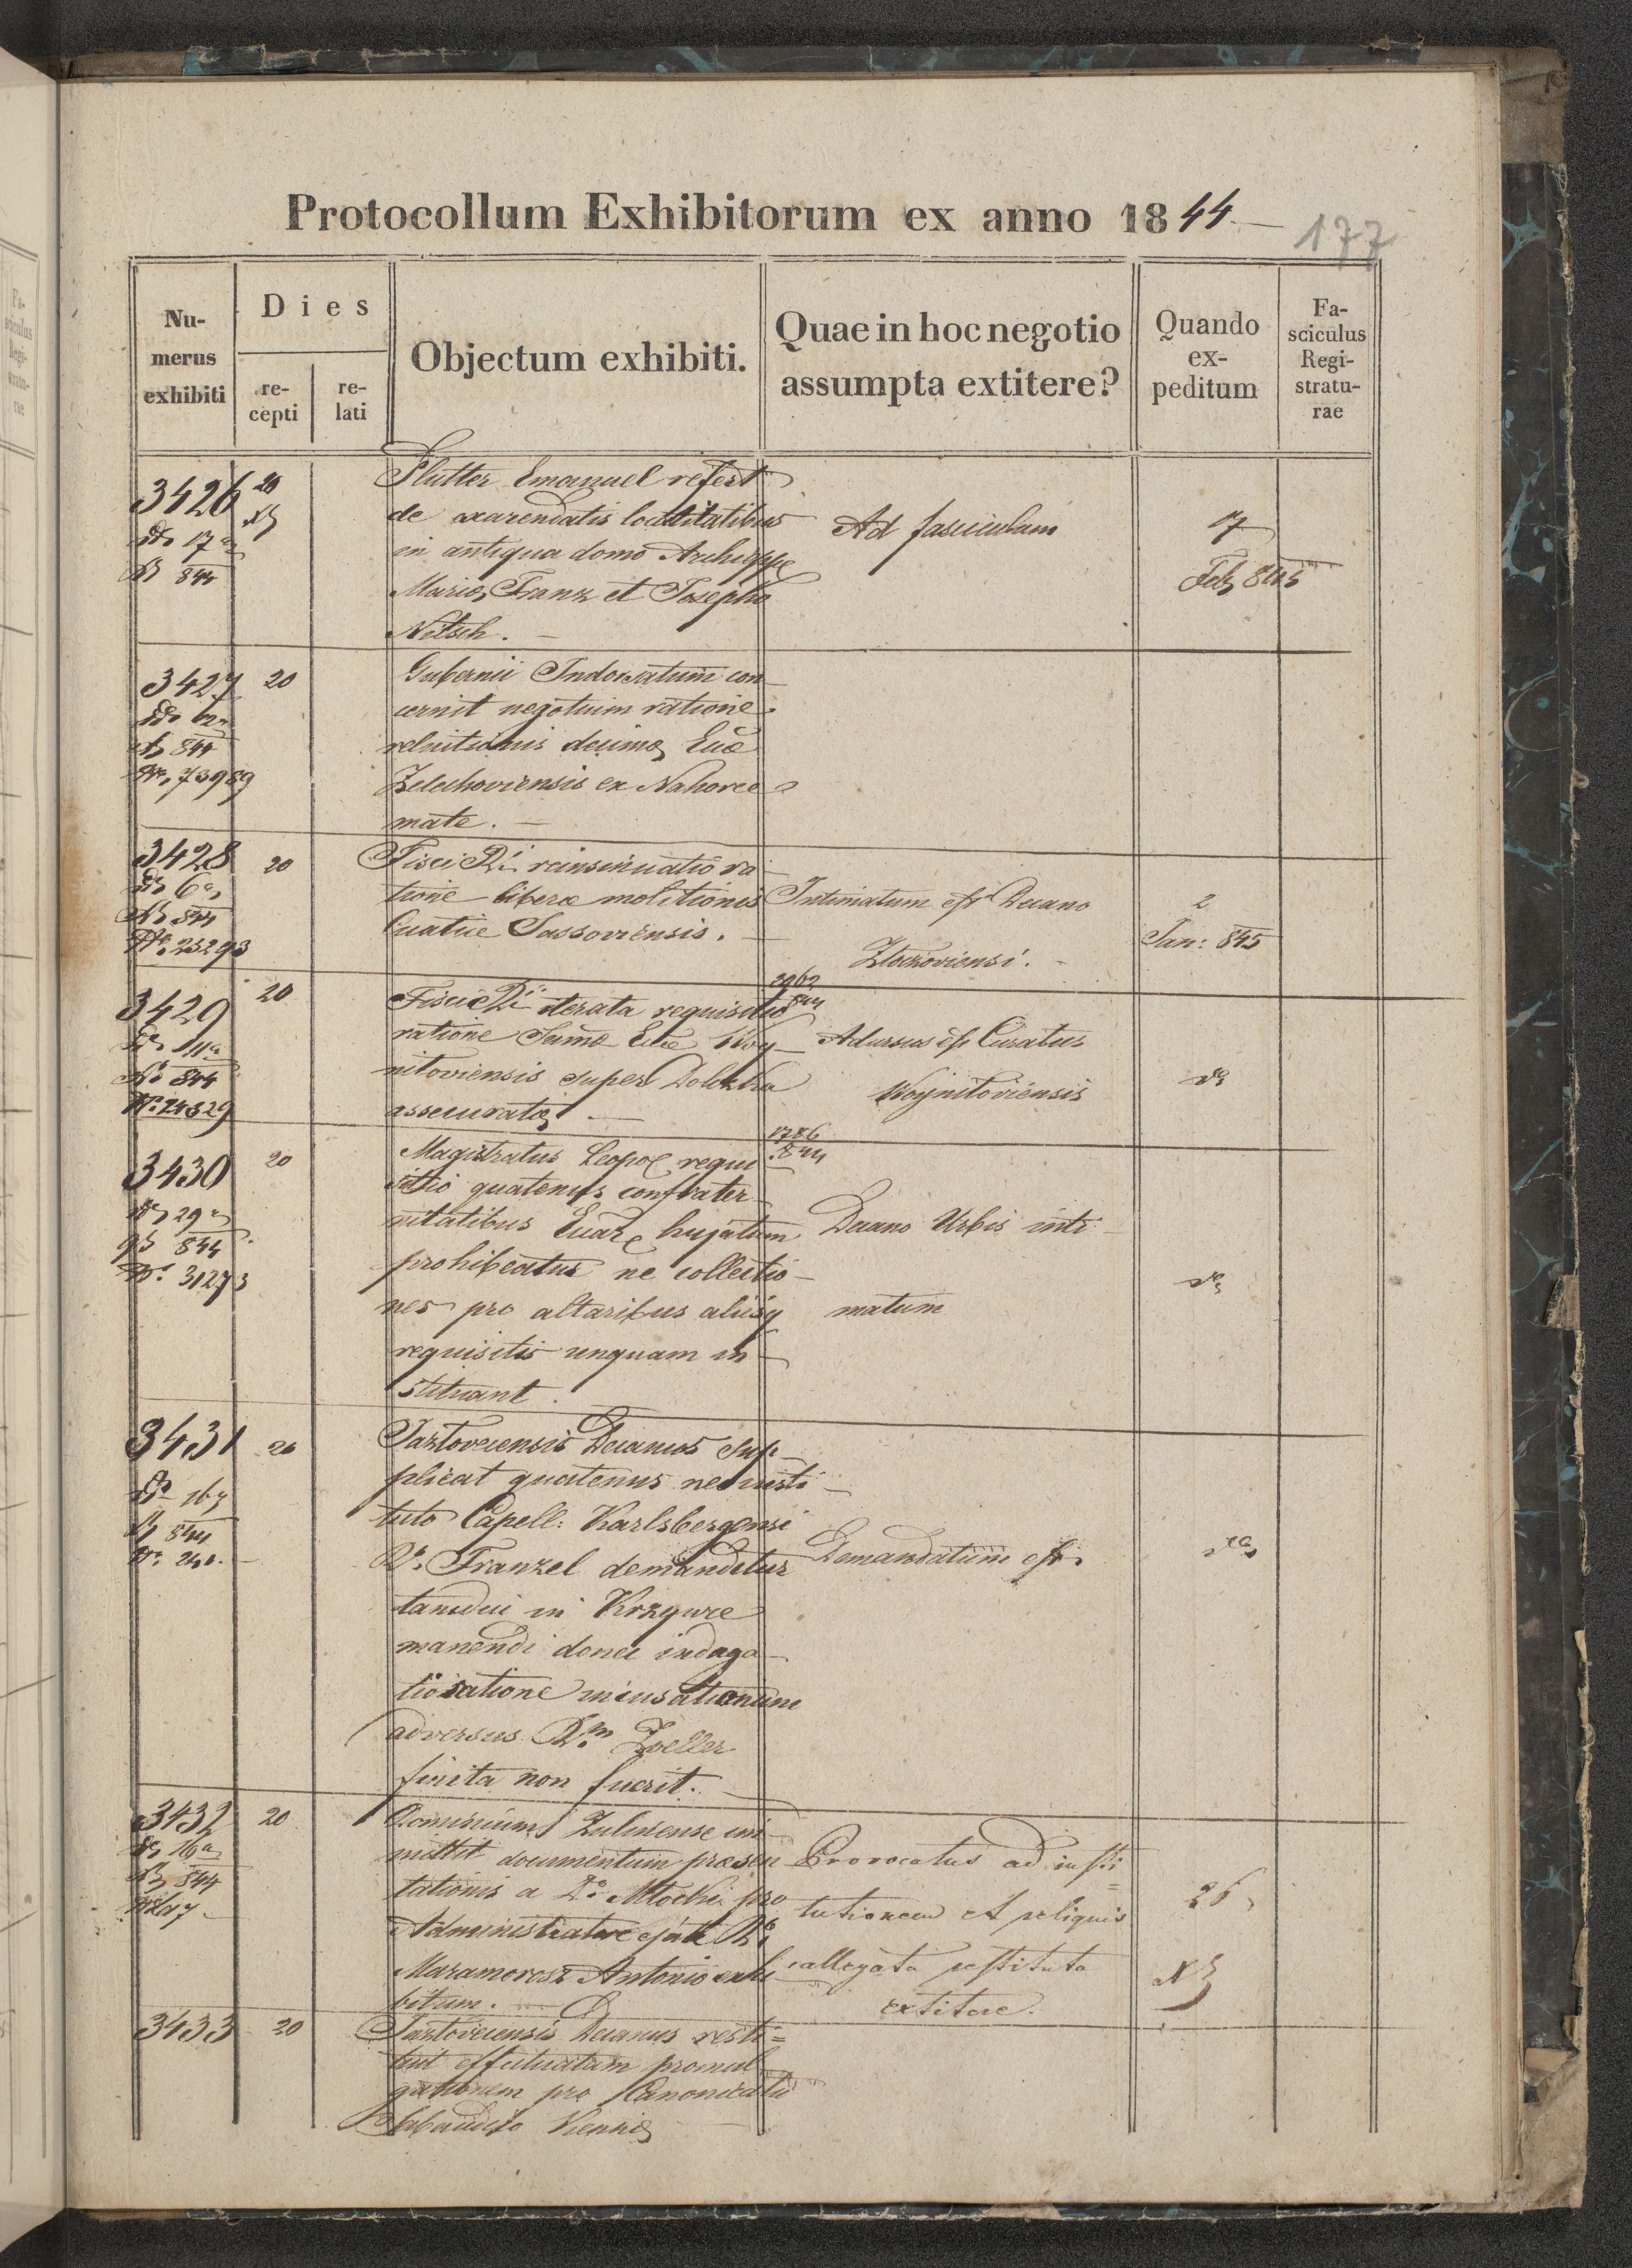 Protocollum Exhibitorum ex anno 1844
177
Nu-
merus
exhibiti
Dies
re-
cepti
re-
lati
Objectum exhibiti.
Quae in hoc negotio
assumpta extitere?
Quando
ex-
peditum
Fa-
sciculus
Regi-
stratu-
rae
3426
20
ddo 17a
844
Plutter Emanuel refert
de exarendatis localitatibus
in antiqua domo
Franz et Josepho
Nitsch. —
Ad fasciculum
7
Feb 845
3427
20
844
No 73989
Gubernii Indorsatum con-
cernit negotium ratione
reluitionis decimae Ecclae
Zelechoviensis ex Nahorce
mate. —
3428
20
ddo 6a
844
No 23293
Fisci Rii reinsinuatio ra
tione liberae molitionis
Curatiae Sassoviensis. —
Intimatum est Decano
Zloczoviensi. —
2
Jan: 845
3429
20
844
No 24329
Fisci Rii iterata requisitio
ratione Sumae Ecclae Woy-
nitoviensis super
assecuratae —
2962
844
Adursus est Curatus
Woynitoviensis
3430
20
29a
844
No 31273
Magistratus Leopol requi
sitio quatenus confrater
nitatibus hujatum
prohibeatur ne collectio-
nes pro altaribus aliisq
requisitis unquam in-
stituant.
1786
844
Decano Urbis inti-
matum
3431
20
844
No 240. —
Jazloveciensis Decanus sup-
plicat quatenus neo insti-
tuto Capell: Karlsbergensi
Franzel demandetur
tamdiu in Krzywe
manendi donec indaga-
tio ratione incusationum
adversus Rdm Zoeller
finita non fuerit. —
Demandatum est.
3432
20
ddo 16a
844
Dominium
mittit documentum praesen
tationis a Mlocki pro
Administratore
Maramorosz Antonio exhi
bitum. —
Provocatus ad insti=
tutionem et reliquis
allegata restituta
extitere.
26
3433
20
Jazloveciensis Decanus resti=
tuit effectuatam promul
gationem pro Canonicatu